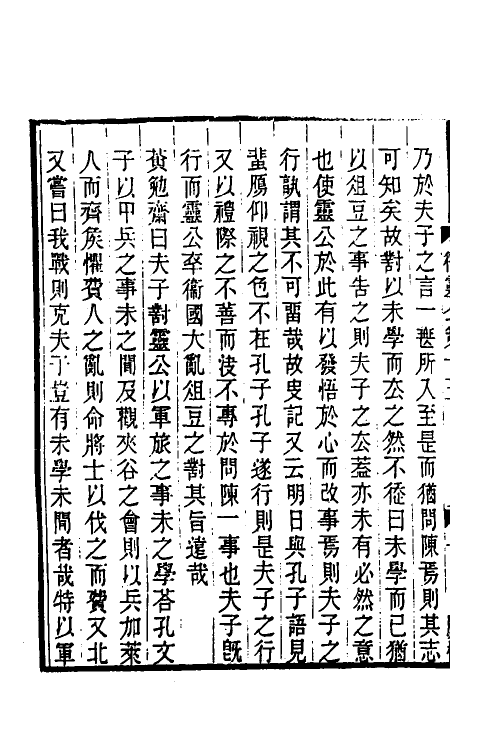 乃於夫子之言一無所入至是而猶問陳焉則其志
可知矣故對以未學而去之然不徒曰未學而已猶
以俎豆之事告之則夫子之去葢亦未有必然之意
也使靈公於此有以發悟於心而改事焉則夫子之
行孰謂其不可畱哉故史記又云明日與孔子語見
蜚鴈仰視之色不在孔子孔子遂行則是夫子之行
又以禮際之不善而決不專於問陳一事也夫子旣
行而靈公卒衞國大亂俎豆之對其旨遠哉
黃勉齋曰夫子對靈公以軍旅之事未之學荅孔文
子以甲兵之事未之聞及觀夾谷之會則以兵加萊
人而齊矦懼費人之亂則命將士以伐之而費又北
又嘗曰我戰則克夫子豈有未學未聞者哉特以軍